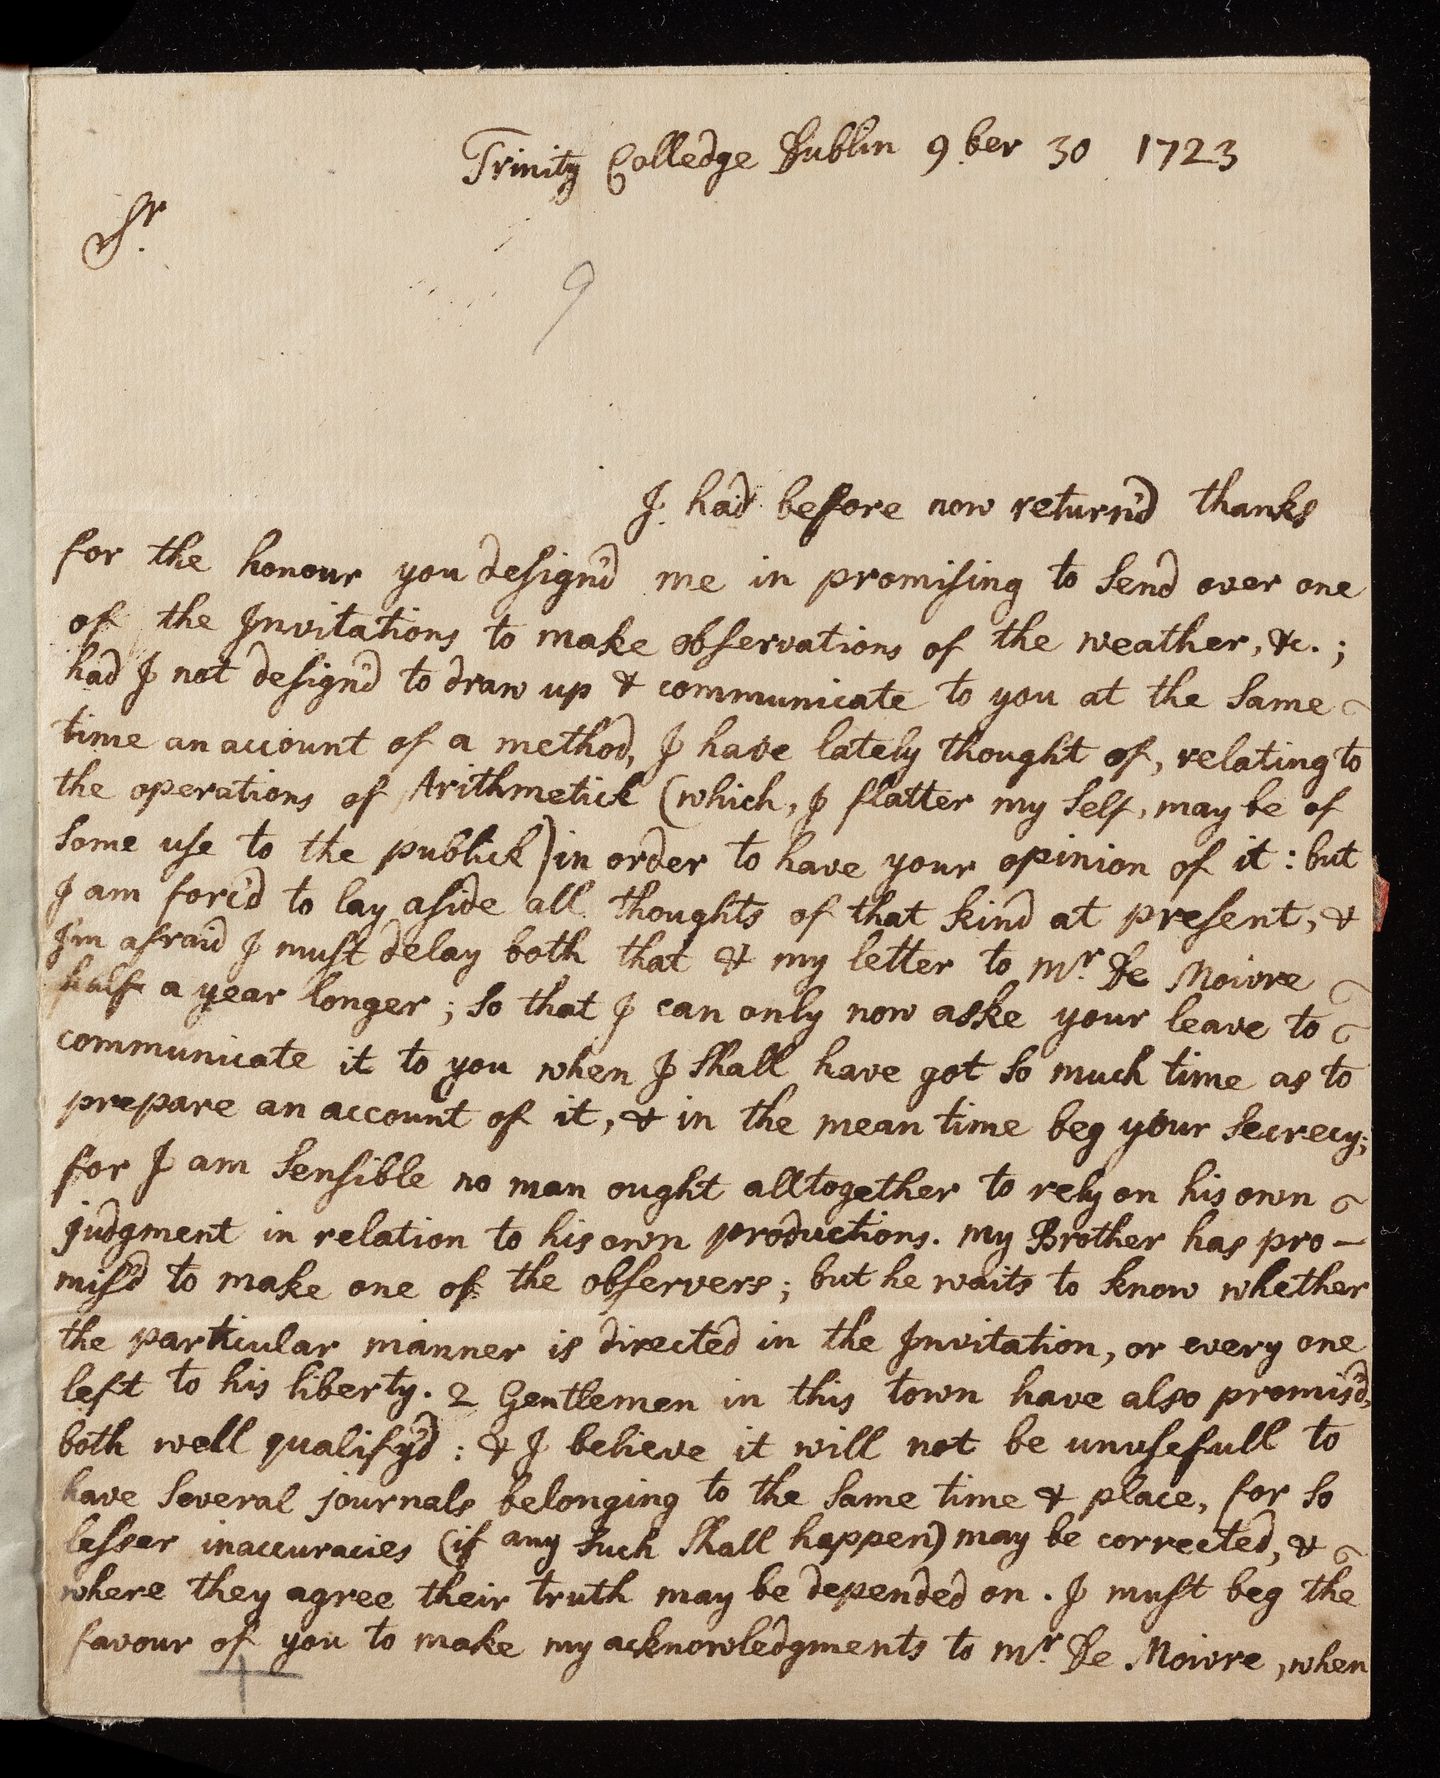 Trinity Colledge Dublin 9ber 30 1723
Sr.
9
I had before now return'd thanks
for the honour you design'd me in promising to send over one
of the Invitations to make observations of the weather, &c.;
had I not design'd to draw up & communicate to you at the same
time an account of a method, I have lately thought of, relating to
the operations of Arithmetick (which, I flatter my self, may be of
some use to the publick) in order to have your opinion of it: but
I am forc'd to lay aside all thoughts of that kind at present, &
I'm afraid I must delay both that & my letter to Mr. De Moivre
half a year longer; so that I can only now aske your leave to
communicate it to you when I shall have got so much time as to
prepare an account of it, & in the mean time beg your secrecy;
for I am sensible no man ought alltogether to rely on his own
judgment in relation to his own productions. My Brother has pro-
mis'd to make one of the observers; but he waits to know whether
the particular manner is directed in the Invitation, or every one
left to his liberty. 2 Gentlemen in this town have also promis'd,
both well qualify'd: & I believe it will not be unusefull to
have several journals belonging to the same time & place, for so
lesser inaccuracies (if any such shall happen) may be corrected, &
where they agree their truth may be depended on. I must beg the
favour of you to make my acknowledgments to Mr. De Moivre, when